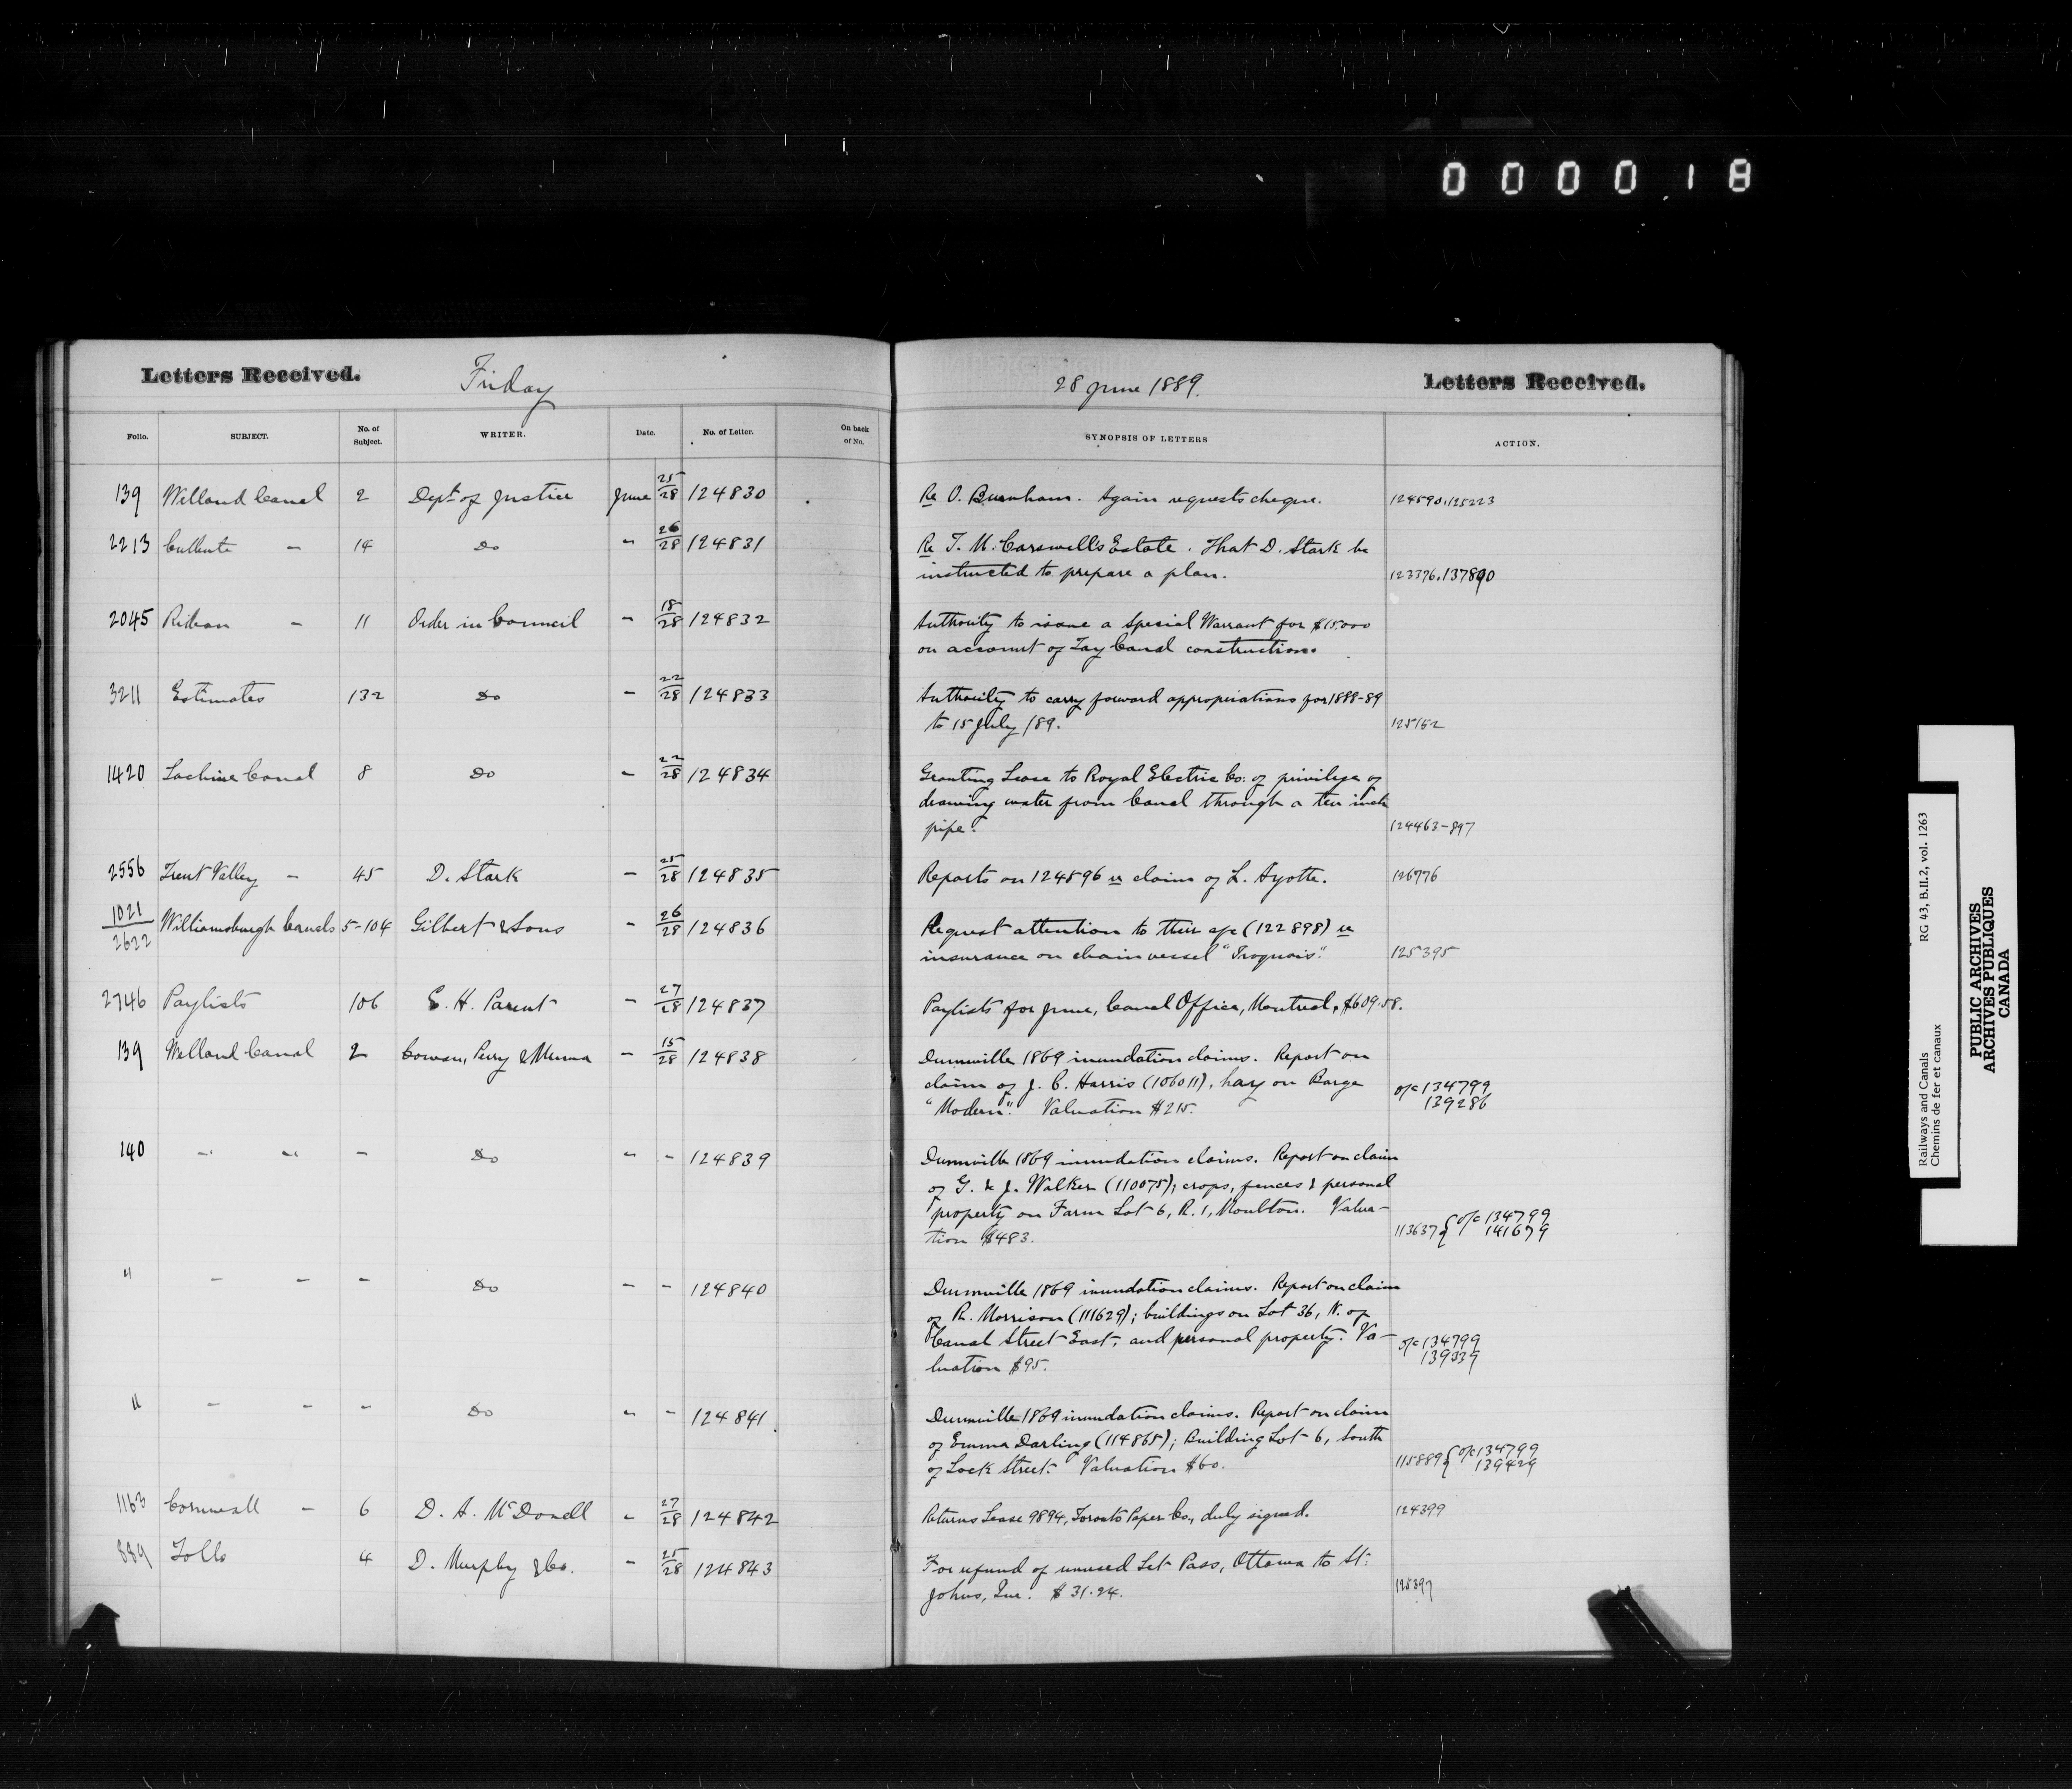 0 0 0 0 1 8
Letters Received. Friday 28 June 1889. Letters Received.
Folio. SUBJECT. No. of Subject. WRITER. Date. No. of Letter. On back of No. SYNOPSIS OF LETTERS ACTION.
139 Welland Canal 2 Dept. of Justice June 25/28 124830 Re O. Burnham. Again requests cheque. 124590.125223
2213 Culbute - 14 Do " 26/28 124831 Re T. M. Carswell's Estate. That D. Stark be
instructed to prepare a plan. 123376.137890
2045 Rideau - 11 Order in Council - 18/28 124832 Authority to issue a Special Warrant for $15.000
on account of Tay Canal construction.
3211 Estimates 132 Do - 22/28 124833 Authority to carry forward appropriations for 1888-89
to 15 July /89. 125152
1420 Lachine Canal 8 Do - 22/28 124834 Granting Lease to Royal Electric Co: of privilege of
drawing water from Canal through a ten inch
pipe. 124463-897
2556 Trent Valley - 45 D. Stark - 25/28 124835 Reports on 124596 re claim of L. Ayotte. 126776
1021/2622 Williamsburgh Canals 5-104 Gilbert & Sons - 26/28 124836 Request attention to their a/c (122898) re
insurance on chain vessel "Iroquois". 125395
2746 Paylists 106 E. H. Parent - 27/28 124837 Paylists for June, Canal Office, Montreal, $609.58.
139 Welland Canal 2 Cowan, Perry & Munma - 15/28 124838 Dunnville 1869 inundation claims. Report on
claim of J. C. Harris (106011), hay on Barge o/c 134799
"Modern". Valuation $215. 139286
140 " " - Do " - 124839 Dunnville 1869 inundation claims. Report on claim
of G. & J. Walker (110075); crops, fences & personal
property on Farm Lot 6, R. 1, Moulton. Valua- 113637 { o/c 134799
tion $483. 141679
" - - - Do - - 124840 Dunnville 1869 inundation claims. Report on claim
of R. Morrison (111629); buildings on Lot 36, N. of
Canal Street East, and personal property. Va- o/c 134799
luation $95. 139339
" - - - Do " - 124841 Dunnville 1869 inundation claims. Report on claim
of Emma Darling (114865); Building Lot 6, South
of Lock Street. Valuation $60. 115889 { o/c 134799 139429
1163 Cornwall - 6 D. A. McDonell " 27/28 124842 Returns Lease 9894, Toronto Paper Co., duly signed. 124399
889 Tolls 4 D. Murphy & Co. - 25/28 124843 For refund of unused Let Pass, Ottawa to St.
Johns, Que. $31.24. 125397
Railways and Canals RG 43, B.II.2, vol. 1263
Chemins de fer et canaux
PUBLIC ARCHIVES
ARCHIVES PUBLIQUES
CANADA